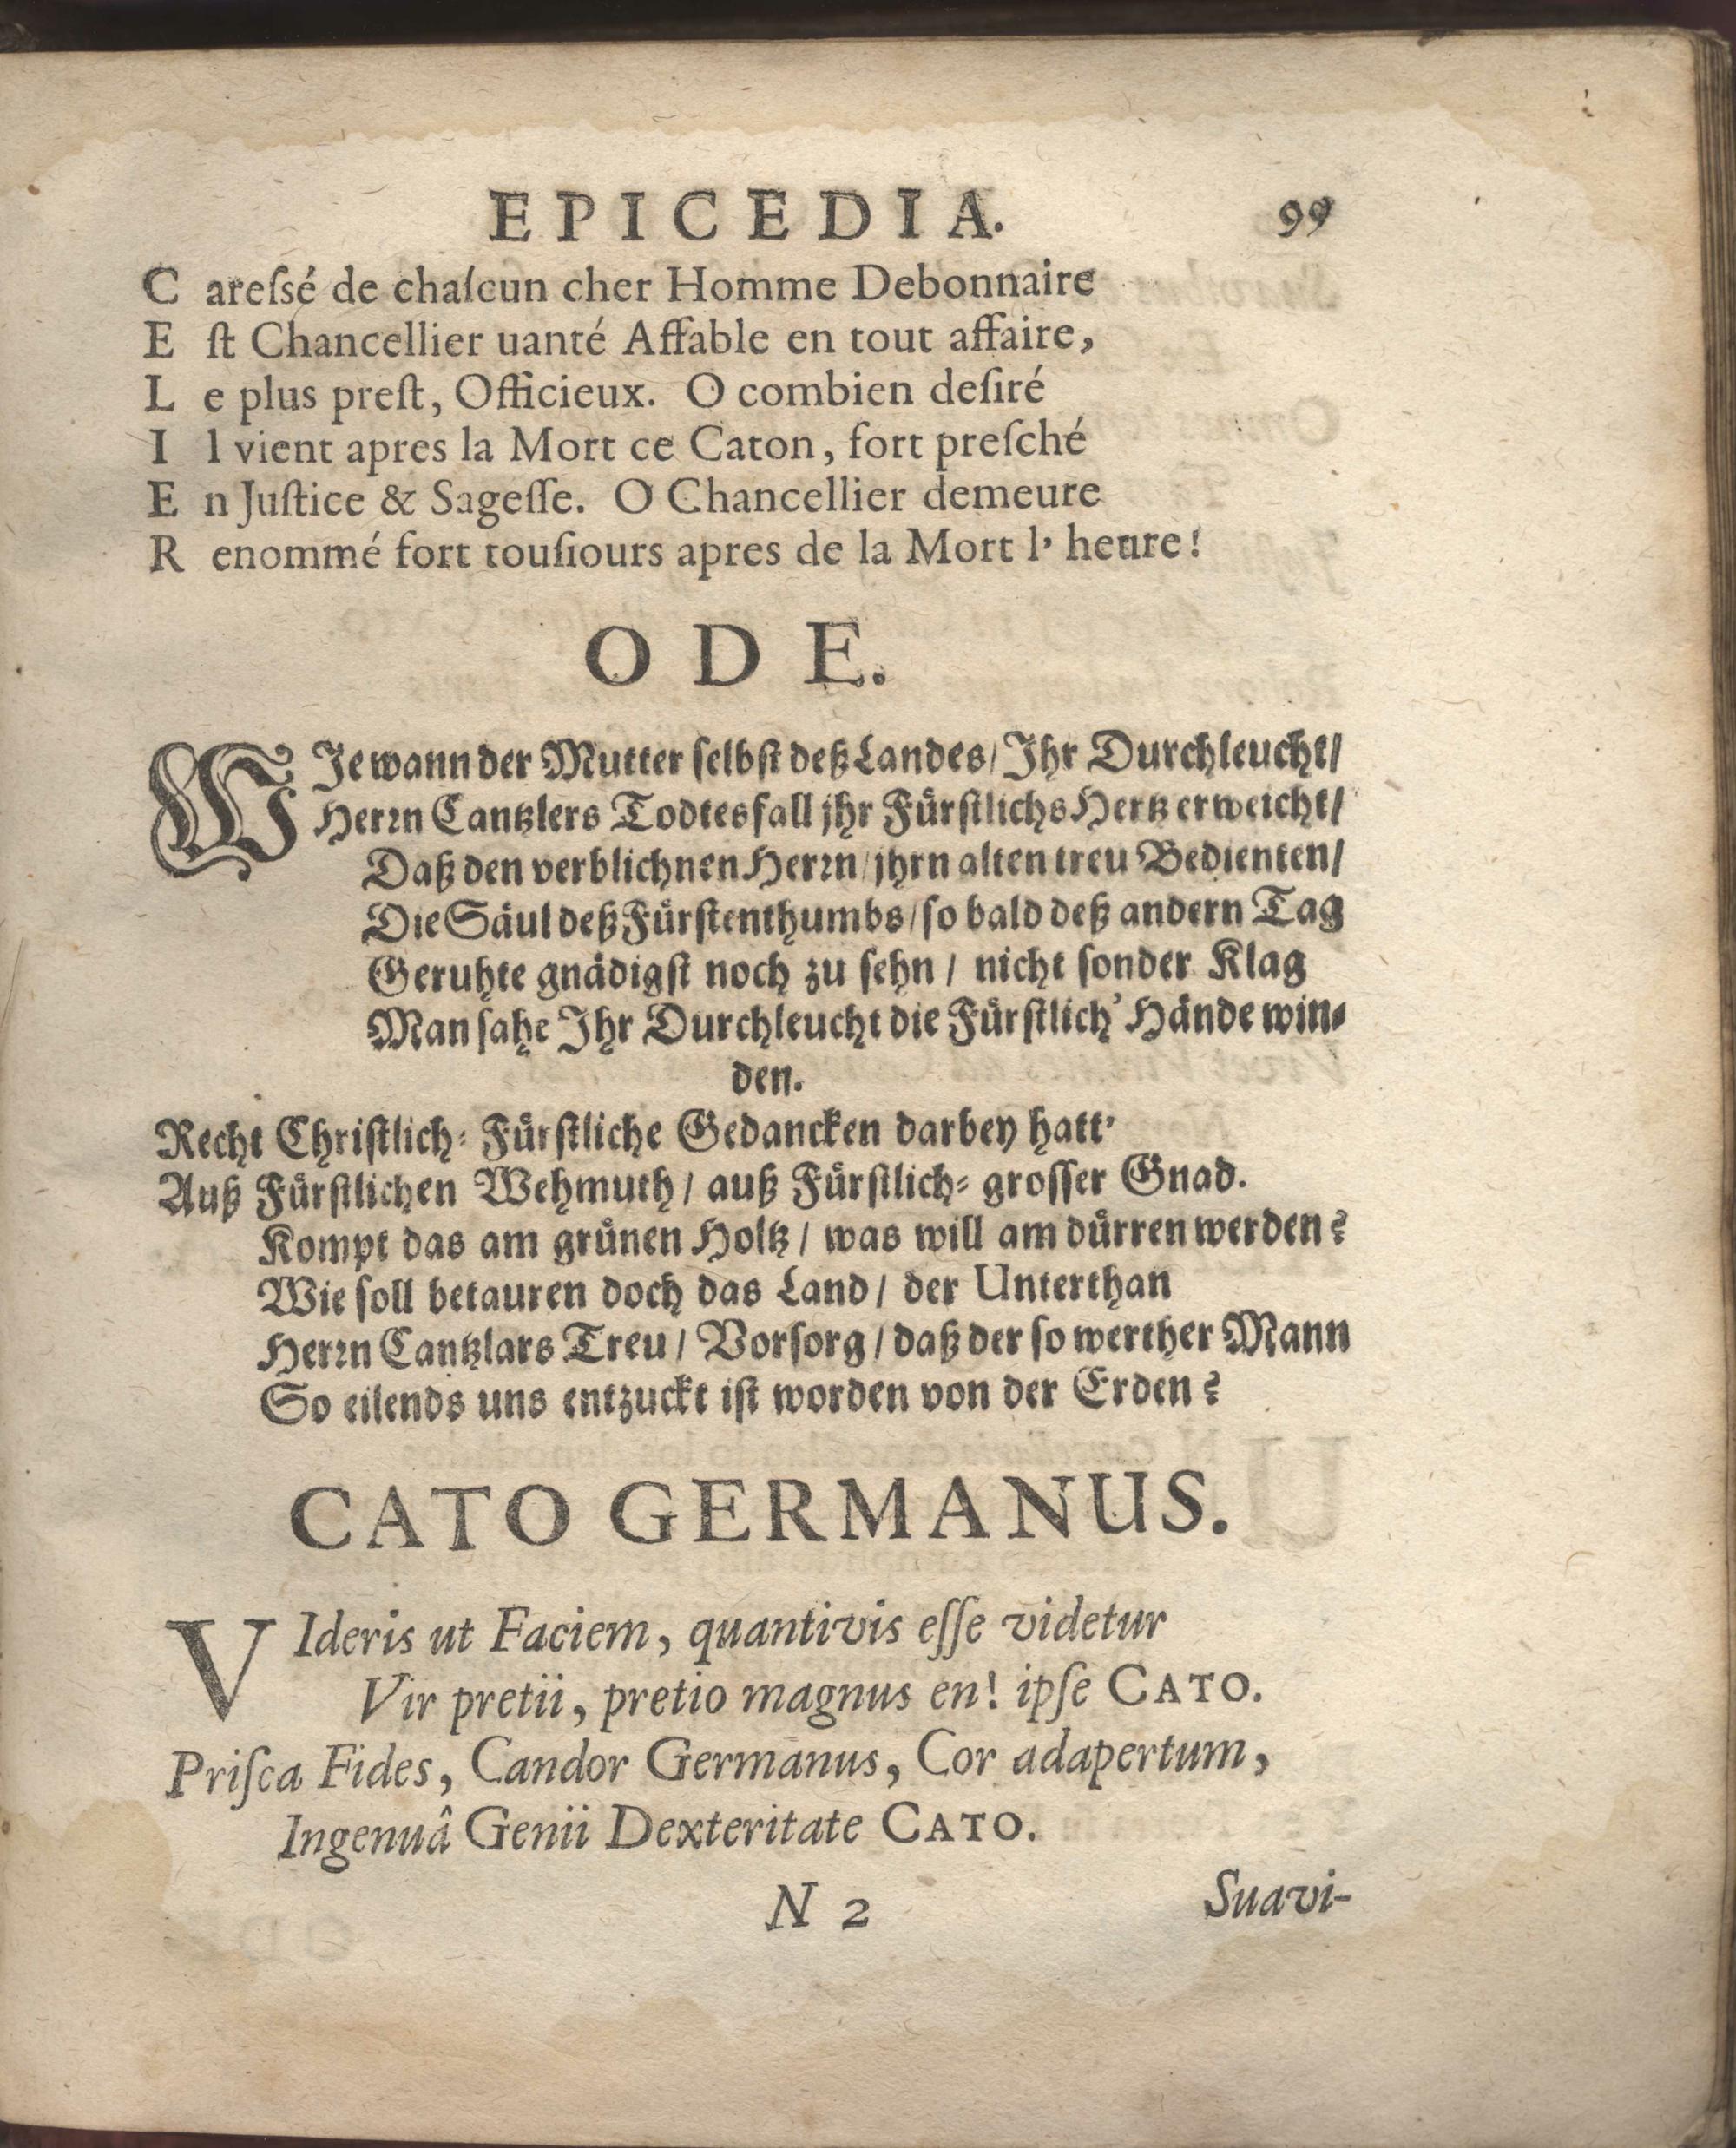 EPICEDIA. 99
C areſsé de chaſcun cher Homme Debonnaire
E ſt Chancellier uanté Affable en tout affaire,
L e plus preſt, Officieux. O combien deſiré
I l vient apres la Mort ce Caton, fort preſché
E n Juſtice & Sageſſe. O Chancellier demeure
R enommé fort touſiours apres de la Mort l' heure!
ODE.
WJe wann der Mutter ſelbſt deß Landes / Jhr Durchleucht /
Herrn Cantzlers Todtesfall jhr Fürſtlichs Hertz erweicht /
Daß den verblichnen Herrn / jhrn alten treu Bedienten /
Die Säul deß Fürſtenthumbs / ſo bald deß andern Tag
Geruhte gnädigſt noch zu ſehn / nicht ſonder Klag
Man ſahe Jhr Durchleucht die Fürſtlich' Hände win-
den.
Recht Chriſtlich- Fürſtliche Gedancken darbey hatt'
Auß Fürſtlichen Wehmuth / auß Fürſtlich- groſſer Gnad.
Kompt das am grünen Holtz / was will am dürren werden?
Wie ſoll betauren doch das Land / der Unterthan
Herrn Cantzlars Treu / Vorſorg / daß der ſo werther Mann
So eilends uns entzuckt iſt worden von der Erden?
CATO GERMANUS.
VIderis ut Faciem, quantivis eſſe videtur
Vir pretii, pretio magnus en! ipſe CATO.
Priſca Fides, Candor Germanus, Cor adapertum,
Ingenuâ Genii Dexteritate CATO.
N 2 Suavi-